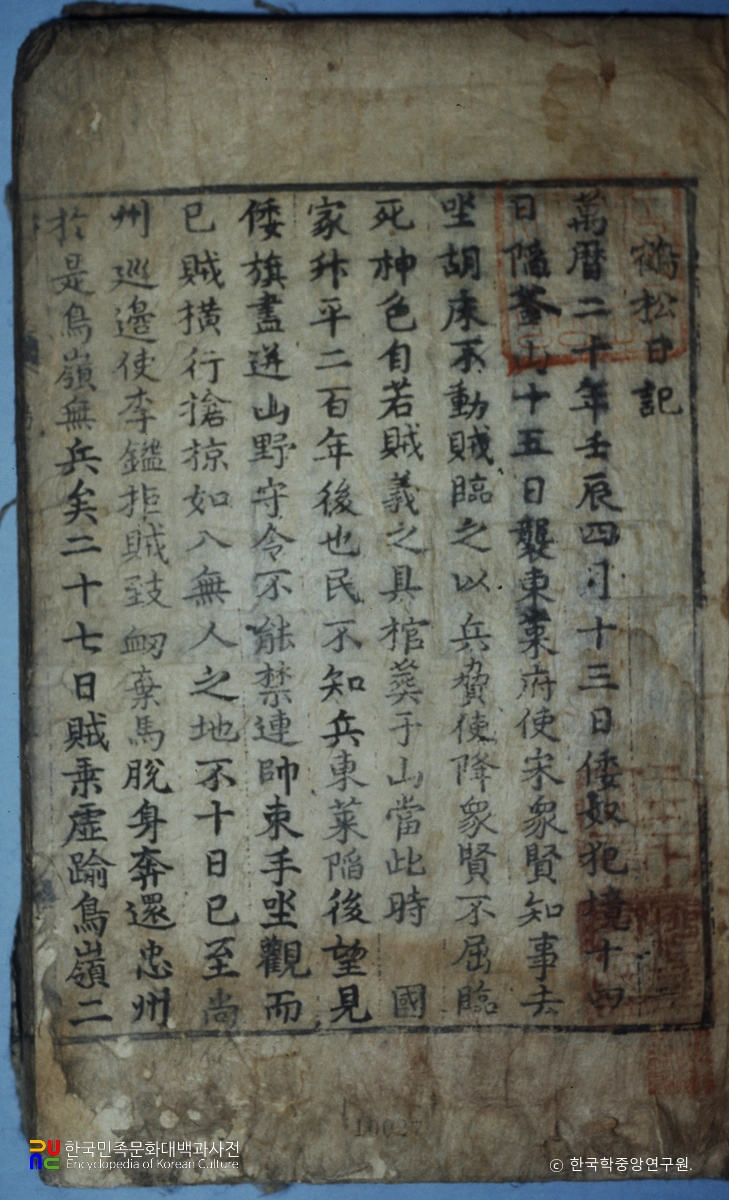 鶴松日記
萬曆二十年壬辰四月十三日倭奴犯境十四
日陷釜山十五日襲東萊府使宋象賢知事去
坐胡床不動賊臨之以兵脅使降象賢不屈臨
死神色自若賊義之具棺葬于山當此時 國
家升平二百年後也民不知兵東萊陷後望見
倭旗盡逬山野守令不能禁連帥束手坐觀而
已賊橫行搶掠如入無人之地不十日已至尙
州巡邊使李鎰拒賊致衂棄馬脫身奔還忠州
於是鳥嶺無兵矣二十七日賊乘虛踰鳥嶺二
10027
한국민족문화대백과사전
Encyclopedia of Korean Culture
© 한국학중앙연구원.